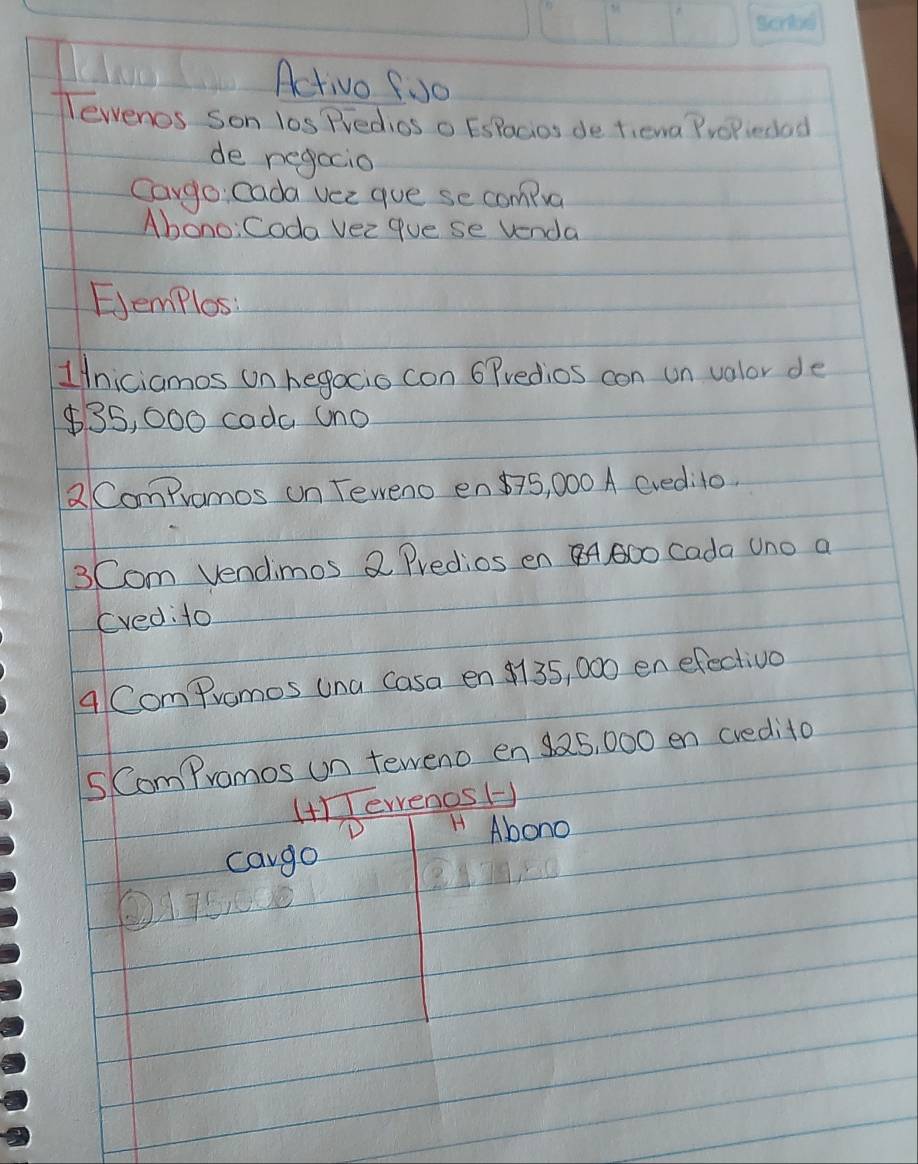 Scribe
Activo fijo
Terrenos son los Predios o Espacios de tierra Propiedad
de negocio
Cargo: Cada vez que se compra
Abono: Cada vez que se venda
Ejemplos:
1 Iniciamos un negocio con 6 Predios con un valor de
$35,000 cada uno
2 Compramos un Terreno en $75,000 A credito.
3 Com vendimos 2 Predios en cada uno a
credito
4 Compramos una casa en $135,000 en efectivo
5 Compramos un terreno en $25,000 en credito
(+) Terrenos (-)
D H Abono
cargo
② 75,000